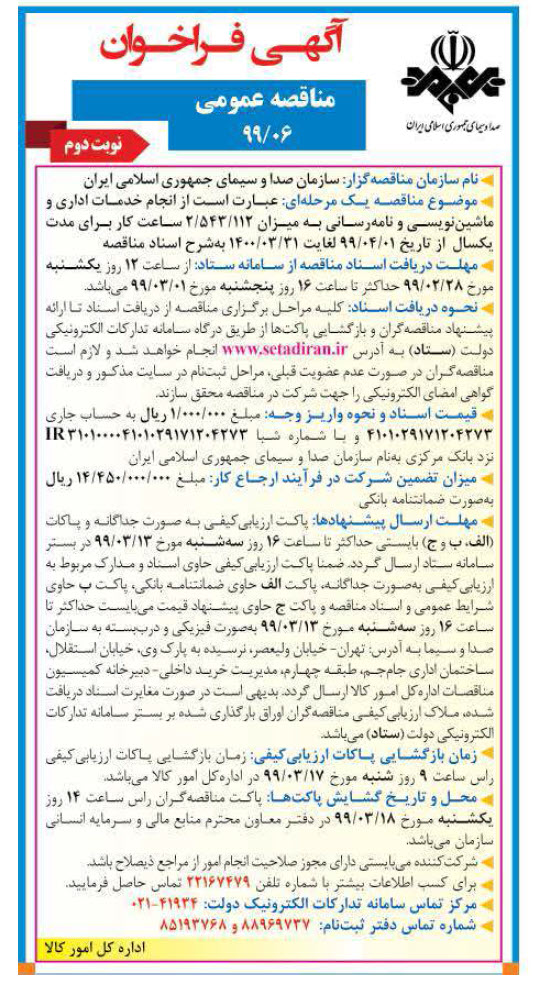 آگهی فراخوان
صدا و سیمای جمهوری اسلامی ایران
مناقصه عمومی
۹۹/۰۶
نوبت دوم
نام سازمان مناقصه‌گزار: سازمان صدا و سیمای جمهوری اسلامی ایران
موضوع مناقصه یک مرحله‌ای: عبارت است از انجام خدمات اداری و
ماشین‌نویسی و نامه‌رسانی به میزان ۲/۵۴۳/۱۱۲ ساعت کار برای مدت
یکسال از تاریخ ۹۹/۰۴/۰۱ لغایت ۱۴۰۰/۰۳/۳۱ به‌شرح اسناد مناقصه
مهلت دریافت اسناد مناقصه از سامانه ستاد: از ساعت ۱۲ روز یکشنبه
مورخ ۹۹/۰۲/۲۸ حداکثر تا ساعت ۱۶ روز پنجشنبه مورخ ۹۹/۰۳/۰۱ می‌باشد.
نحوه دریافت اسناد: کلیه مراحل برگزاری مناقصه از دریافت اسناد تا ارائه
پیشنهاد مناقصه‌گران و بازگشایی پاکت‌ها از طریق درگاه سامانه تدارکات الکترونیکی
دولت (ستاد) به آدرس www.setadiran.ir انجام خواهد شد و لازم است
مناقصه‌گران در صورت عدم عضویت قبلی، مراحل ثبت‌نام در سایت مذکور و دریافت
گواهی امضای الکترونیکی را جهت شرکت در مناقصه محقق سازند.
قیمت اسناد و نحوه واریز وجه: مبلغ ۱/۰۰۰/۰۰۰ ریال به حساب جاری
۴۱۰۱۰۲۹۱۷۱۲۰۴۲۷۳ و با شماره شبا IR۳۱۰۱۰۰۰۰۴۱۰۱۰۲۹۱۷۱۲۰۴۲۷۳
نزد بانک مرکزی به‌نام سازمان صدا و سیمای جمهوری اسلامی ایران
میزان تضمین شرکت در فرآیند ارجاع کار: مبلغ ۱۴/۴۵۰/۰۰۰/۰۰۰ ریال
به‌صورت ضمانتنامه بانکی
مهلت ارسال پیشنهادها: پاکت ارزیابی‌کیفی به صورت جداگانه و پاکات
(الف، ب و ج) بایستی حداکثر تا ساعت ۱۶ روز سه‌شنبه مورخ ۹۹/۰۳/۱۳ در بستر
سامانه ستاد ارسال گردد. ضمنا پاکت ارزیابی‌کیفی حاوی اسناد و مدارک مربوط به
ارزیابی‌کیفی به‌صورت جداگانه، پاکت الف حاوی ضمانتنامه بانکی، پاکت ب حاوی
شرایط عمومی و اسناد مناقصه و پاکت ج حاوی پیشنهاد قیمت می‌بایست حداکثر تا
ساعت ۱۶ روز سه‌شنبه مورخ ۹۹/۰۳/۱۳ به‌صورت فیزیکی و درب‌بسته به سازمان
صدا و سیما به آدرس: تهران- خیابان ولیعصر، نرسیده به پارک وی، خیابان استقلال،
ساختمان اداری جام‌جم، طبقه چهارم، مدیریت خرید داخلی- دبیرخانه کمیسیون
مناقصات اداره‌کل امور کالا ارسال گردد. بدیهی است در صورت مغایرت اسناد دریافت
شده، ملاک ارزیابی‌کیفی مناقصه‌گران اوراق بارگذاری شده بر بستر سامانه تدارکات
الکترونیکی دولت (ستاد) می‌باشد.
زمان بازگشایی پاکات ارزیابی‌کیفی: زمان بازگشایی پاکات ارزیابی‌کیفی
راس ساعت ۹ روز شنبه مورخ ۹۹/۰۳/۱۷ در اداره‌کل امور کالا می‌باشد.
محل و تاریخ گشایش پاکت‌ها: پاکت مناقصه‌گران راس ساعت ۱۴ روز
یکشنبه مورخ ۹۹/۰۳/۱۸ در دفتر معاون محترم منابع مالی و سرمایه انسانی
سازمان می‌باشد.
شرکت‌کننده می‌بایستی دارای مجوز صلاحیت انجام امور از مراجع ذیصلاح باشد.
برای کسب اطلاعات بیشتر با شماره تلفن ۲۲۱۶۷۴۷۹ تماس حاصل فرمایید.
مرکز تماس سامانه تدارکات الکترونیک دولت: ۴۱۹۳۴-۰۲۱
شماره تماس دفتر ثبت‌نام: ۸۸۹۶۹۷۳۷ و ۸۵۱۹۳۷۶۸
اداره کل امور کالا